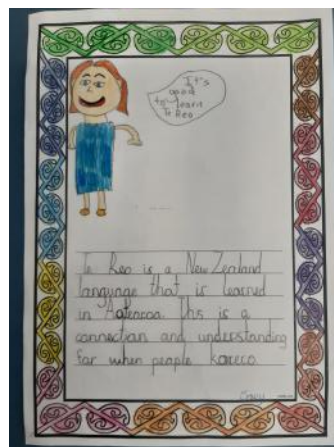 It's
good
to learn
Te Reo
Te Reo is a New Zealand
language that is learned
in Aotearoa. This is a
connection and understanding
for when people korero.